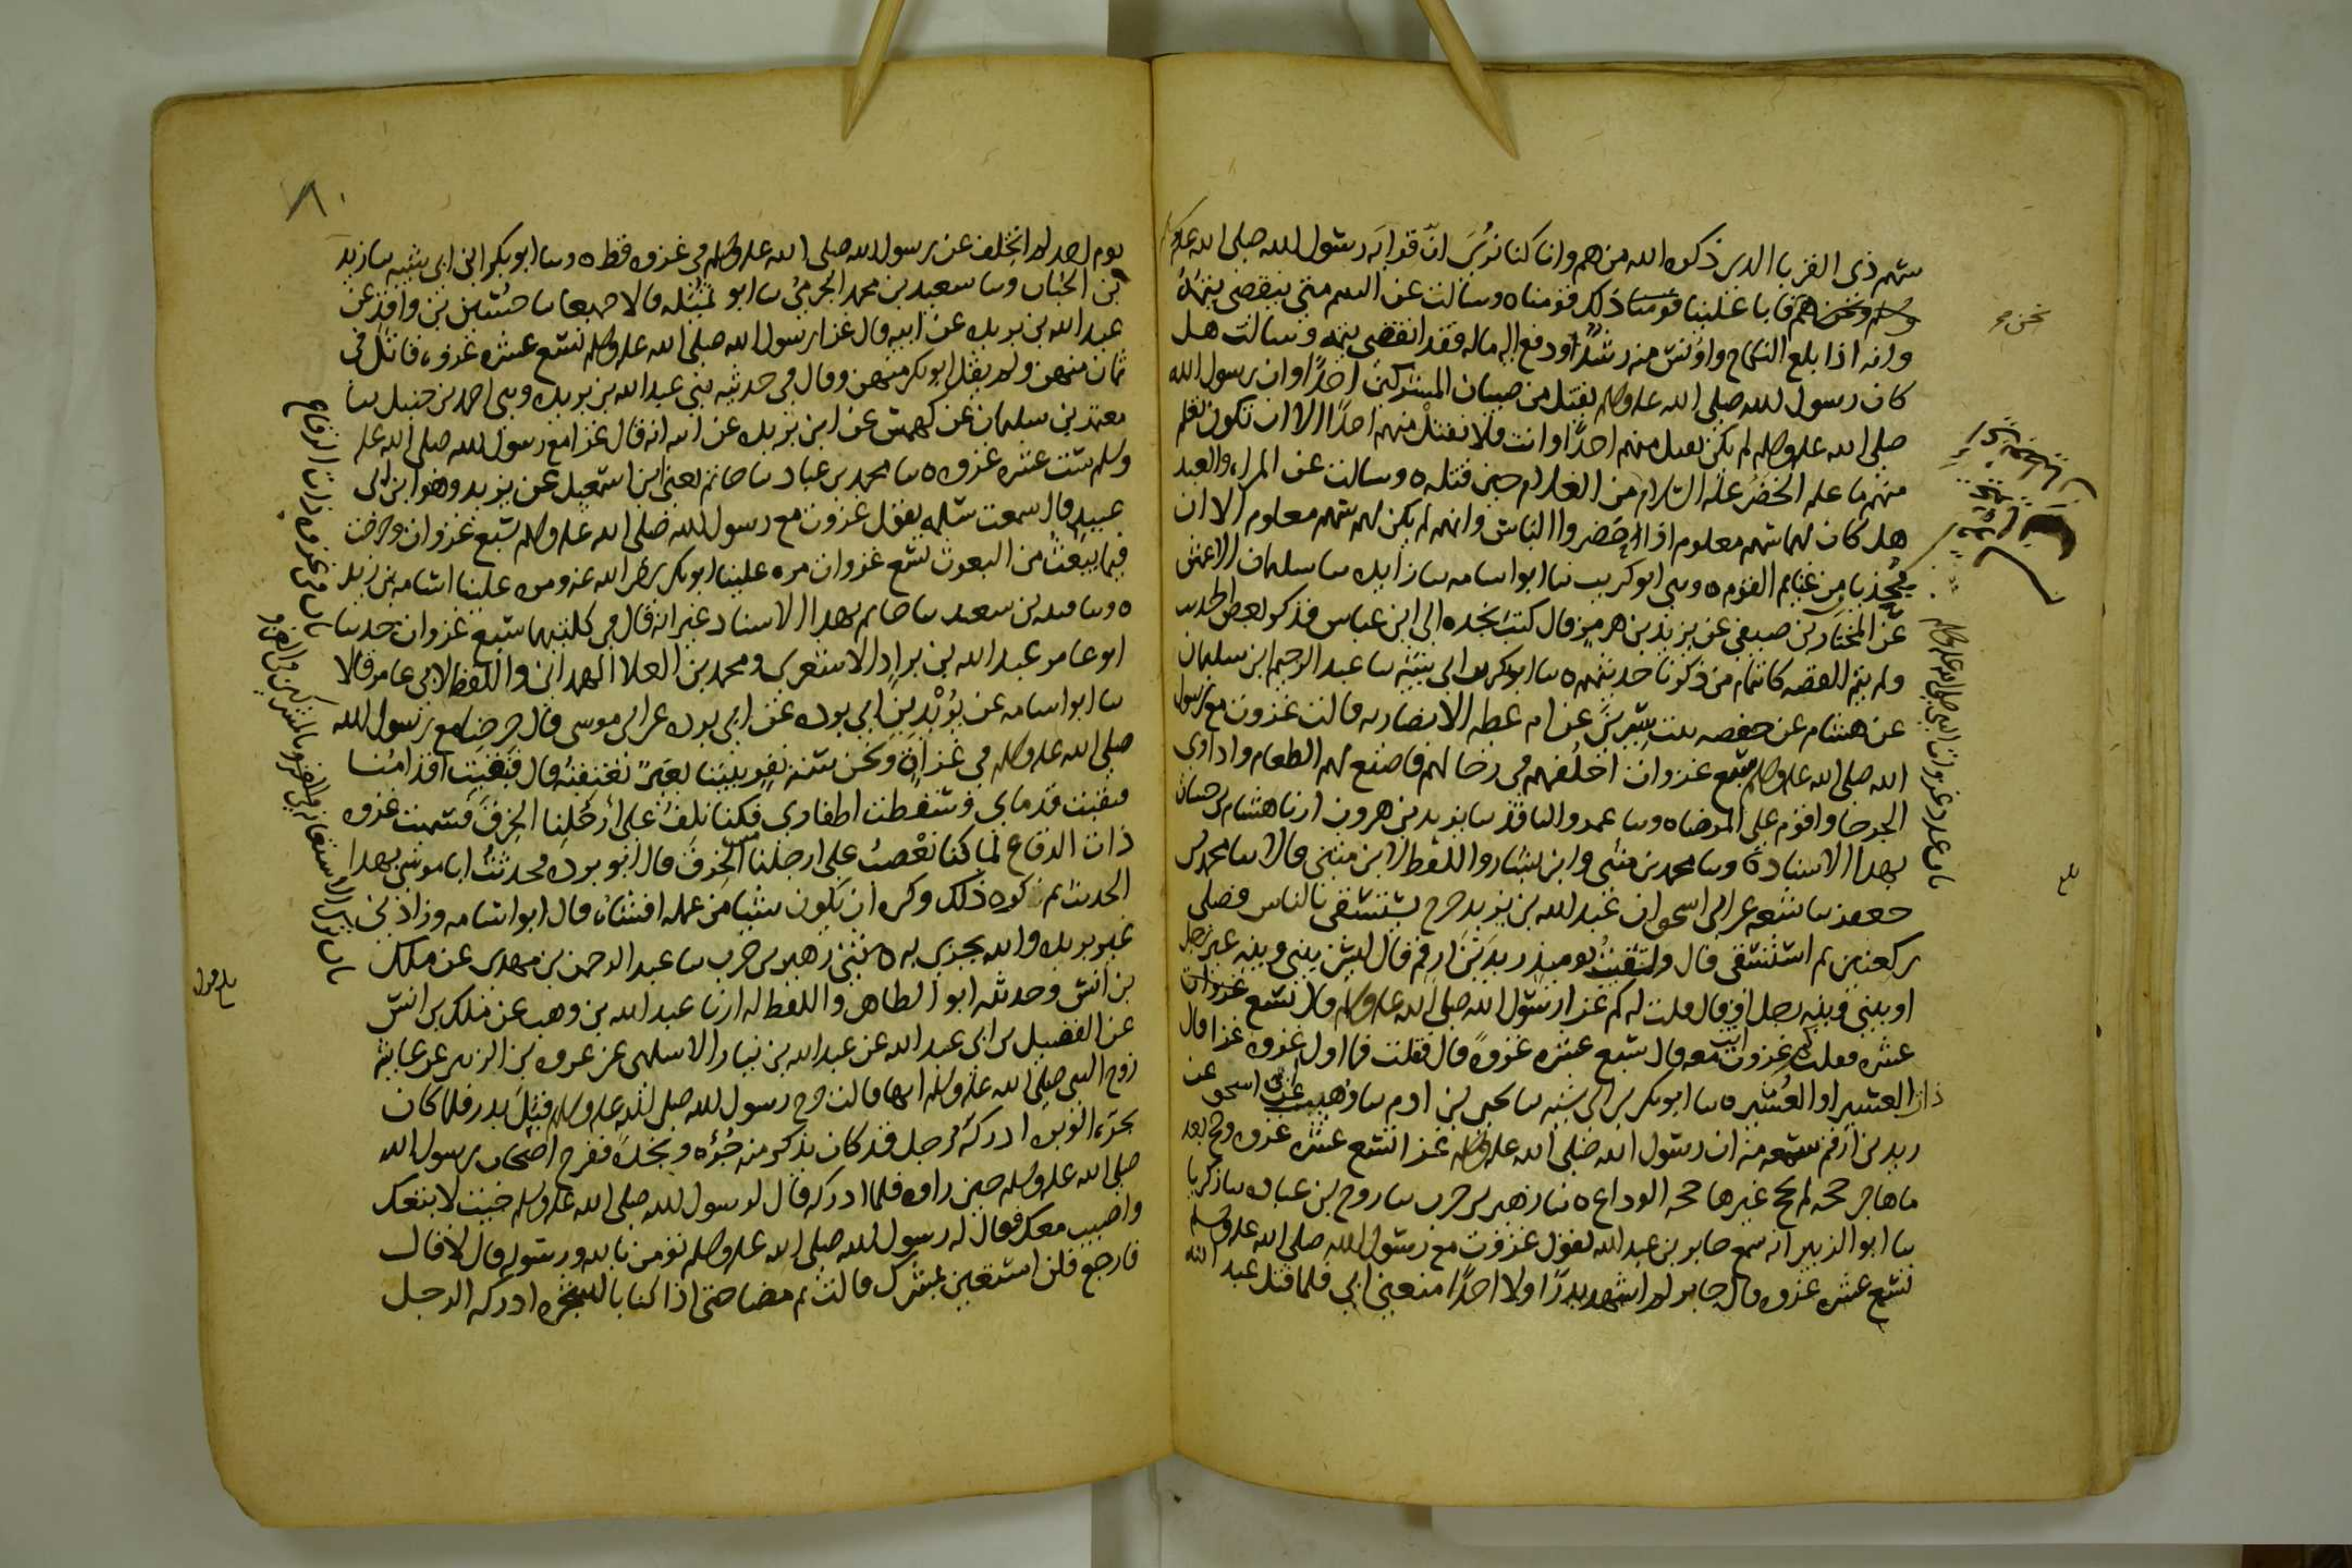 سهم ذي القربا الذين ذكر الله من هم وانا كنا نرى ان قرابة رسول الله صلى الله عليه
وسلم ونحن هم فابا علينا قومنا ذلك قومنا ه وسالت عن اليتيم متى ينقضي يتمه
وانه اذا بلغ النكاح واونس منه رشدا ودفع اليه ماله فقد انقضى يتمه وسالت هل
كان رسول الله صلى الله عليه وسلم يقتل من صبيان المشركين احدا وان رسول الله
صلى الله عليه وسلم لم يكن يقتل منهم احدا وانت فلا تقتل منهم احدا الا ان تكون تعلم
منهم ما علم الخضر عليه السلام من الغلام حين قتله ه وسالت عن المراة والعبد
هل كان لهما سهم معلوم اذا حضروا الناس وانهم لم يكن لهم سهم معلوم الا ان
يحذيا من غنايم القوم ه وحدثني ابو كريب نا ابو اسامه نا زايده نا سليمان الاعمش
عن المختار بن صيفي عن يزيد بن هرمز قال كتب نجده الى ابن عباس فذكر بعض الحديث
ولم يتم القصه كاتمام من ذكرنا حديثهم ه نا ابو بكر بن ابي شيبه نا عبد الرحيم ابن سليمان
عن هشام عن حفصه بنت سيرين عن ام عطيه الانصاريه قالت غزوت مع رسول
الله صلى الله عليه وسلم سبع غزوات اخلفهم في رحالهم فاصنع لهم الطعام واداوي
الجرحا واقوم على المرضا ه ونا عمرو الناقد نا يزيد بن هرون ارنا هشام بن حسان
بهذا الاسناد ه ونا محمد بن مثنى وابن بشار واللفظ لابن مثنى قالا نا محمد بن
جعفر نا شعبه عن ابي اسحق ان عبد الله بن يزيد خرج يستسقي بالناس فصلى
ركعتين ثم استسقى قال ولقيت يوميذ زيد بن ارقم قال ليس بيني وبينه غير رجل
او بيني وبينه رجل قال فقلت له كم غزا رسول الله صلى الله عليه وسلم قال تسع
عشره فقلت كم غزوت انت معه قال سبع عشره غزوة قال فقلت فما اول غزوه غزا قال
ذات العسير او العشير ه نا ابو بكر بن ابي شيبه نا يحيى بن ادم نا زهير عن ابي اسحق عن
زيد بن ارقم سمعه منه ان رسول الله صلى الله عليه وسلم غزا تسع عشره غزوه وحج بعد
ما هاجر حجه لم يحج غيرها حجه الوداع ه نا زهير بن حرب نا روح بن عباده نا زكريا
نا ابو الزبير انه سمع جابر بن عبد الله يقول غزوت مع رسول الله صلى الله عليه وسلم
تسع عشره غزوه قال جابر لم اشهد بدرا ولا احدا منعني ابي فلما قتل عبد الله
نحن هو
باب عدد غزوات النبي صلى الله عليه وسلم
بلغ
٨٠
يوم احد لم اتخلف عن رسول الله صلى الله عليه وسلم في غزوه قط ه ونا ابو بكر ابن ابي شيبه نا زيد
بن الحباب ونا سعيد بن محمد الجرمي نا ابو تميله قالا جميعا نا حسين بن واقد عن
عبد الله بن بريده عن ابيه قال غزا رسول الله صلى الله عليه وسلم تسع عشره غزوه قاتل في
ثمان منهن ولم يقل ابو بكر منهن وقال في حديثه ثنى عبد الله بن بريده وثنى احمد بن حنبل نا
معتمر بن سليمان عن كهمس عن ابن بريده عن ابيه انه قال غزا مع رسول الله صلى الله عليه
وسلم ست عشره غزوه ه نا محمد بن عباد نا حاتم يعني ابن اسمعيل عن يزيد وهو ابن ابي
عبيد قال سمعت سلمه يقول غزوت مع رسول الله صلى الله عليه وسلم سبع غزوات وخرجت
فيما يبعث من البعوث تسع غزوات مره علينا ابو بكر رضي الله عنه ومره علينا اسامه بن زيد
ه ونا قتيبه بن سعيد نا حاتم بهذا الاسناد غير انه قال في كلتيهما سبع غزوات حدثنا
ابو عامر عبد الله بن براد الاشعري ومحمد بن العلا الهمداني واللفظ لابي عامر قالا
نا ابو اسامه عن بريد بن ابي برده عن ابي برده عن ابي موسى قال خرجنا مع رسول الله
صلى الله عليه وسلم في غزاة ونحن ستة نفر بيننا بعير نعتقبه قال فنقبت اقدامنا
فنقبت قدماي وسقطت اظفاري فكنا نلف على ارجلنا الخرق فسميت غزوه
ذات الرقاع لما كنا نعصب على ارجلنا من الخرق قال ابو برده فحدثت ابا موسى بهذا
الحديث ثم كره ذلك وكره ان يكون شيا من عمله افشاه قال ابو اسامه وزادني
غير بريده والله يجزي به ه ثنى زهير بن حرب نا عبد الرحمن بن مهدي عن ملك
بن انس وحدثنيه ابو الطاهر واللفظ له ارنا عبد الله بن وهب عن ملك بن انس
عن الفضيل بن ابي عبد الله عن عبد الله بن نيار الاسلمي عن عروه بن الزبير عن عايشة
زوج النبي صلى الله عليه وسلم انها قالت خرج رسول الله صلى الله عليه وسلم قبل بدر فلما كان
بحرة الوبره ادركه رجل قد كان يذكر منه جرؤه ونجده ففرح اصحاب رسول الله
صلى الله عليه وسلم حين راوه فلما ادركه قال لرسول الله صلى الله عليه وسلم جيت لاتبعك
واصيب معك فقال له رسول الله صلى الله عليه وسلم تومن بالله ورسوله قال لا قال
فارجع فلن استعين بمشرك قالت ثم مضا حتى اذا كنا بالشجره ادركه الرجل
باب في غزوه ذات الرقاع